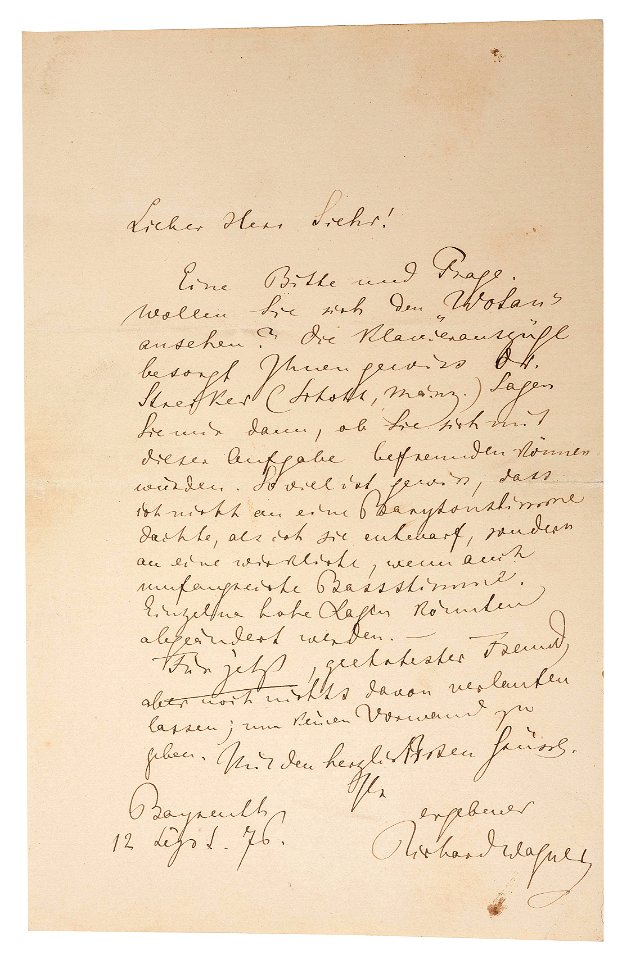 Lieber Herr Siehr!
Eine Bitte und Frage.
Wollen Sie sich den "Wotan"
ansehen? Die Klavierauszüge
besorgt Ihnen gewiss Dr.
Strecker (Schott, Mainz.) Sagen
Sie mir dann, ob Sie sich mit
dieser Aufgabe befreunden können
würden. So viel ist gewiss, dass
ich nicht an eine Barytonstimme
dachte, als ich sie entwarf, sondern
an eine wirkliche, wenn auch
umfangreiche Bassstimme.
Einzelne hohe Lagen könnten
abgeändert werden. —
Für jetzt, geehrtester Freund,
aber noch nichts davon verlauten
lassen; um keinen Vorwand zu
geben. Mit den herzlichsten Grüssen.
Ihr
Bayreuth ergebener
12 Sept. 76. Richard Wagner